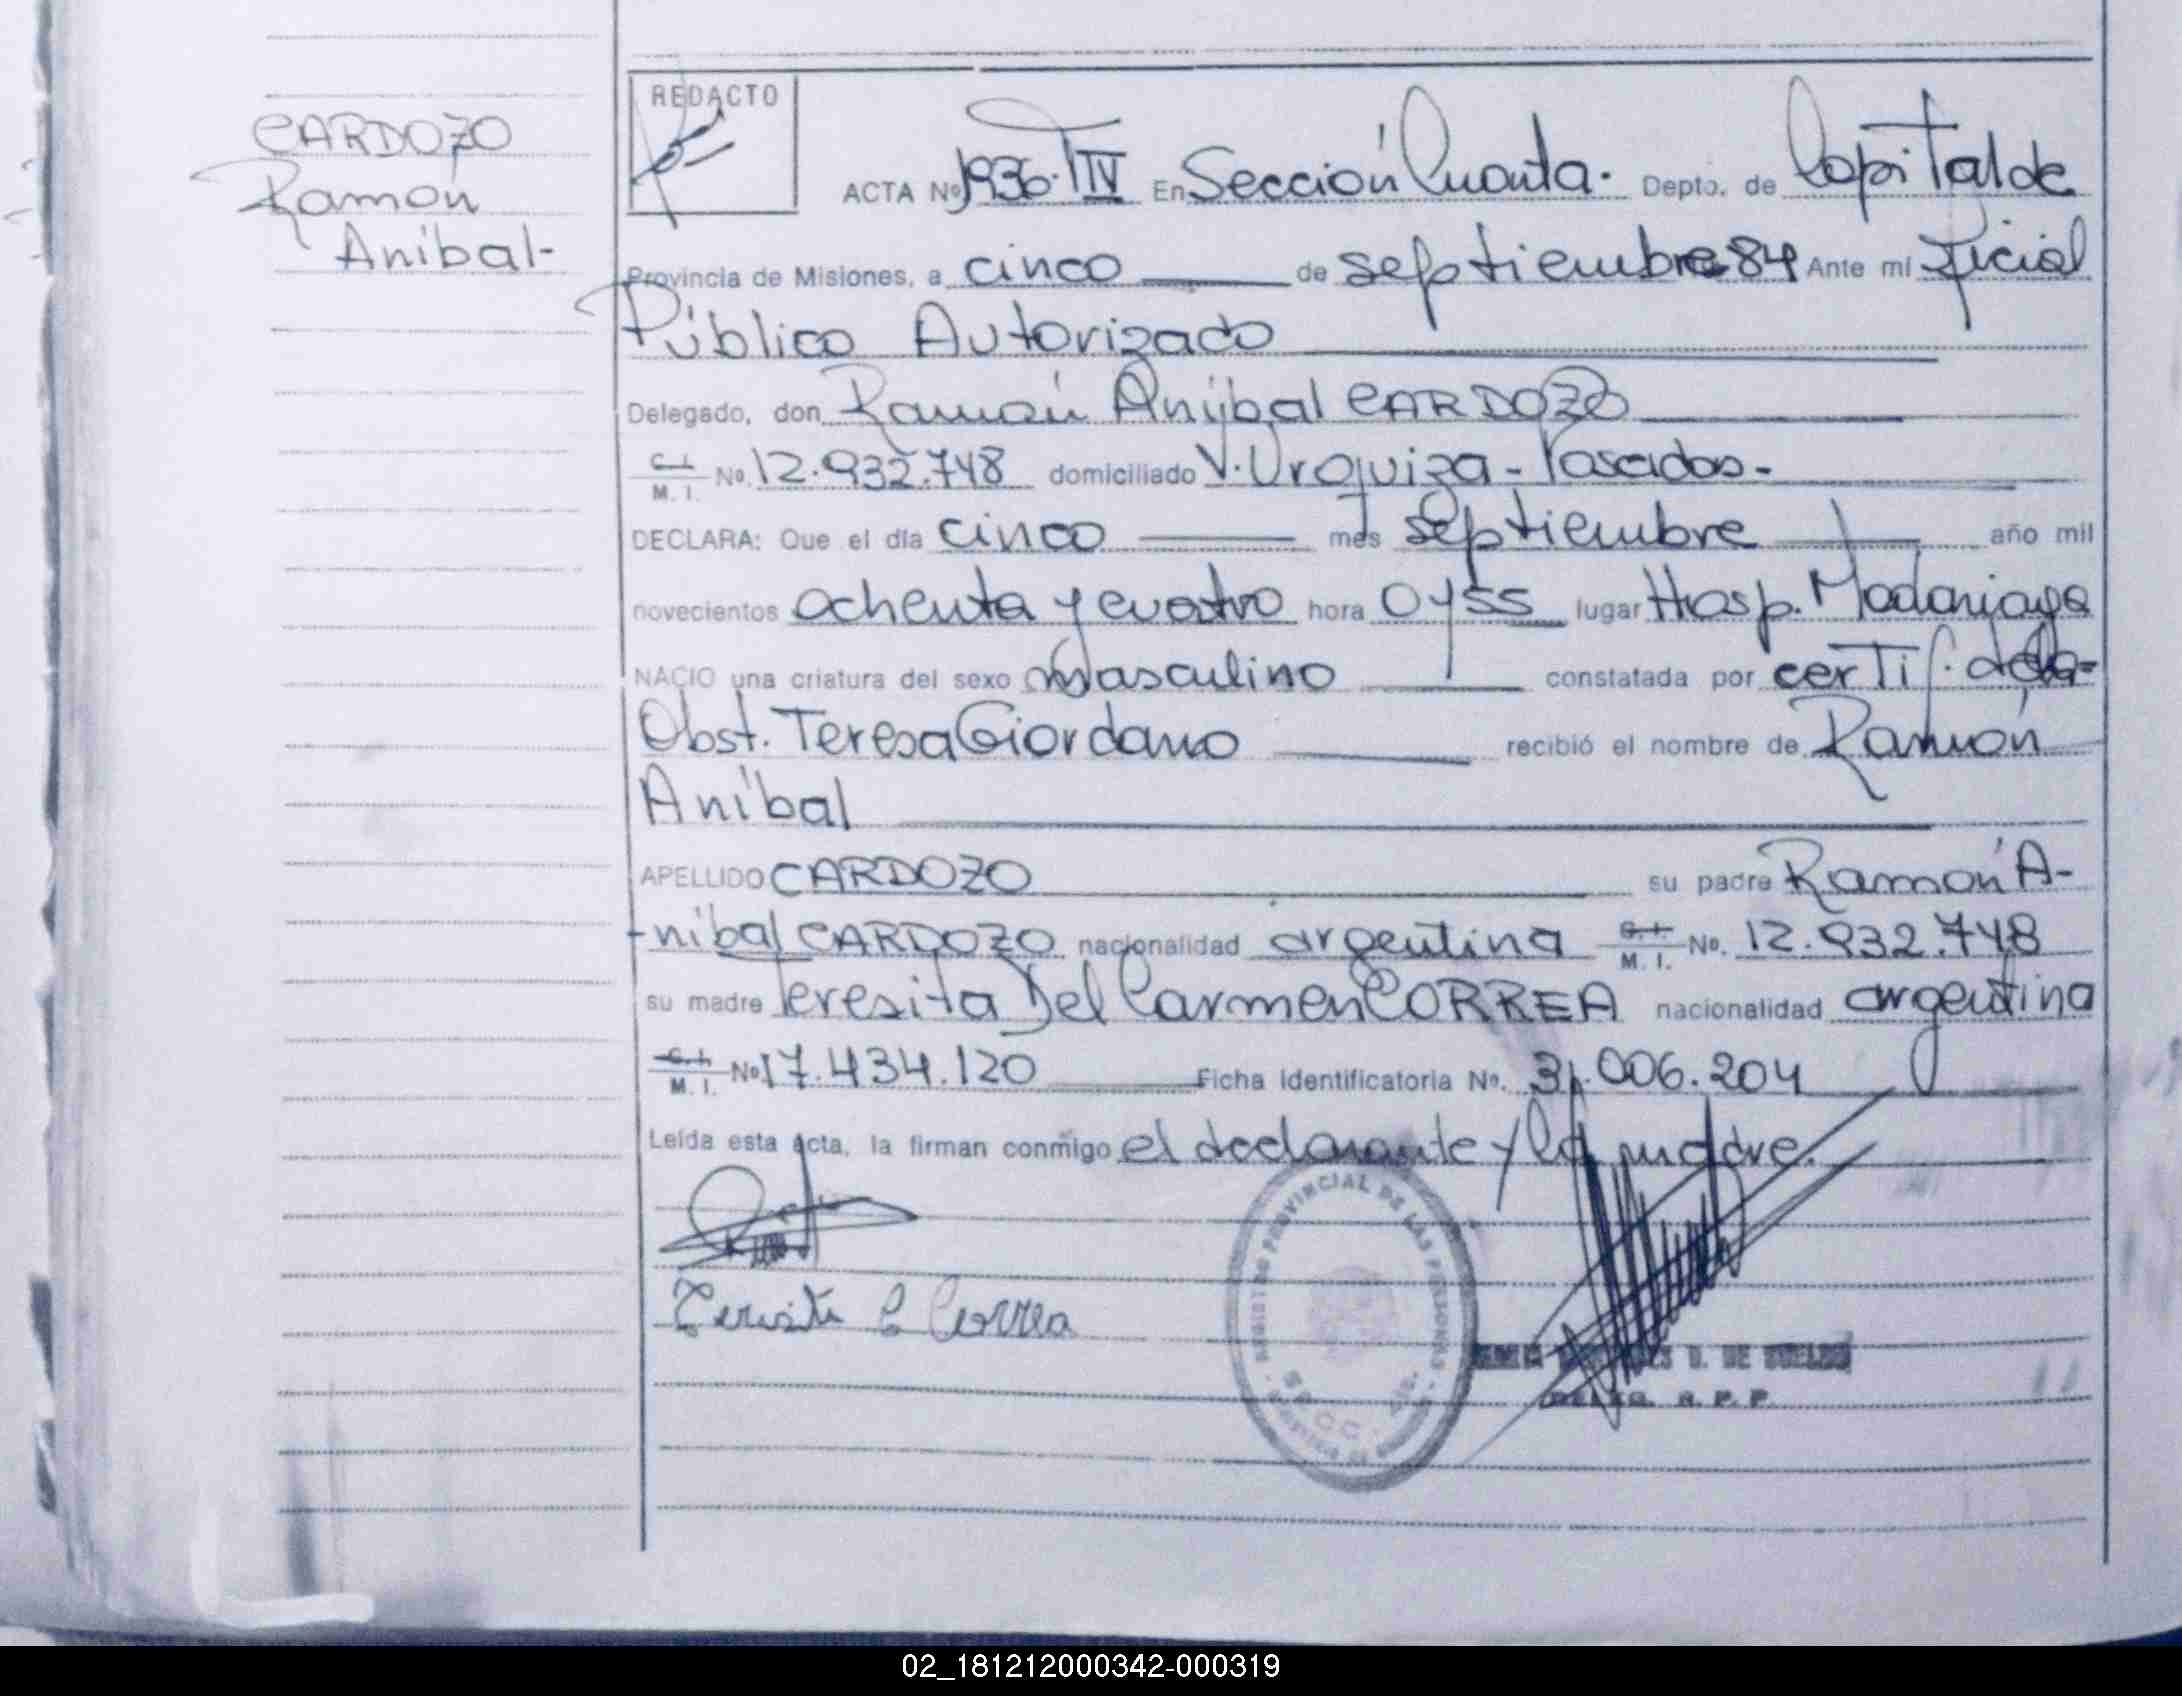 CARDOZO
Ramón
Anibal-
REDACTO
ACTA Nº 1936·TIV En Sección Cuarta. Depto. de Capital de
Provincia de Misiones, a cinco de septiembre 84 Ante mí Oficial
Público Autorizado
Delegado, don Ramón Anibal CARDOZO
C.I. M.I. Nº 12.932.748 domiciliado V. Urquiza - Posadas -
DECLARA: Que el día cinco mes septiembre año mil
novecientos ochenta y cuatro hora 0y55 lugar Hosp. Madariaga
NACIO una criatura del sexo Masculino constatada por certif. de la
Obst. Teresa Giordano recibió el nombre de Ramón
Anibal
APELLIDO CARDOZO su padre Ramón A-
-nibal CARDOZO nacionalidad argentina C.I. M.I. Nº. 12.932.748
su madre Teresita Del Carmen CORREA nacionalidad argentina
C.I. M.I. Nº 17.434.120 Ficha Identificatoria Nº. 31.006.204
Leída esta acta, la firman conmigo el declarante y la madre.
Teresita C Correa
REGISTRO PROVINCIAL DE LAS PERSONAS
DE SUELDO
DELEG. R. P. P.
02_181212000342-000319